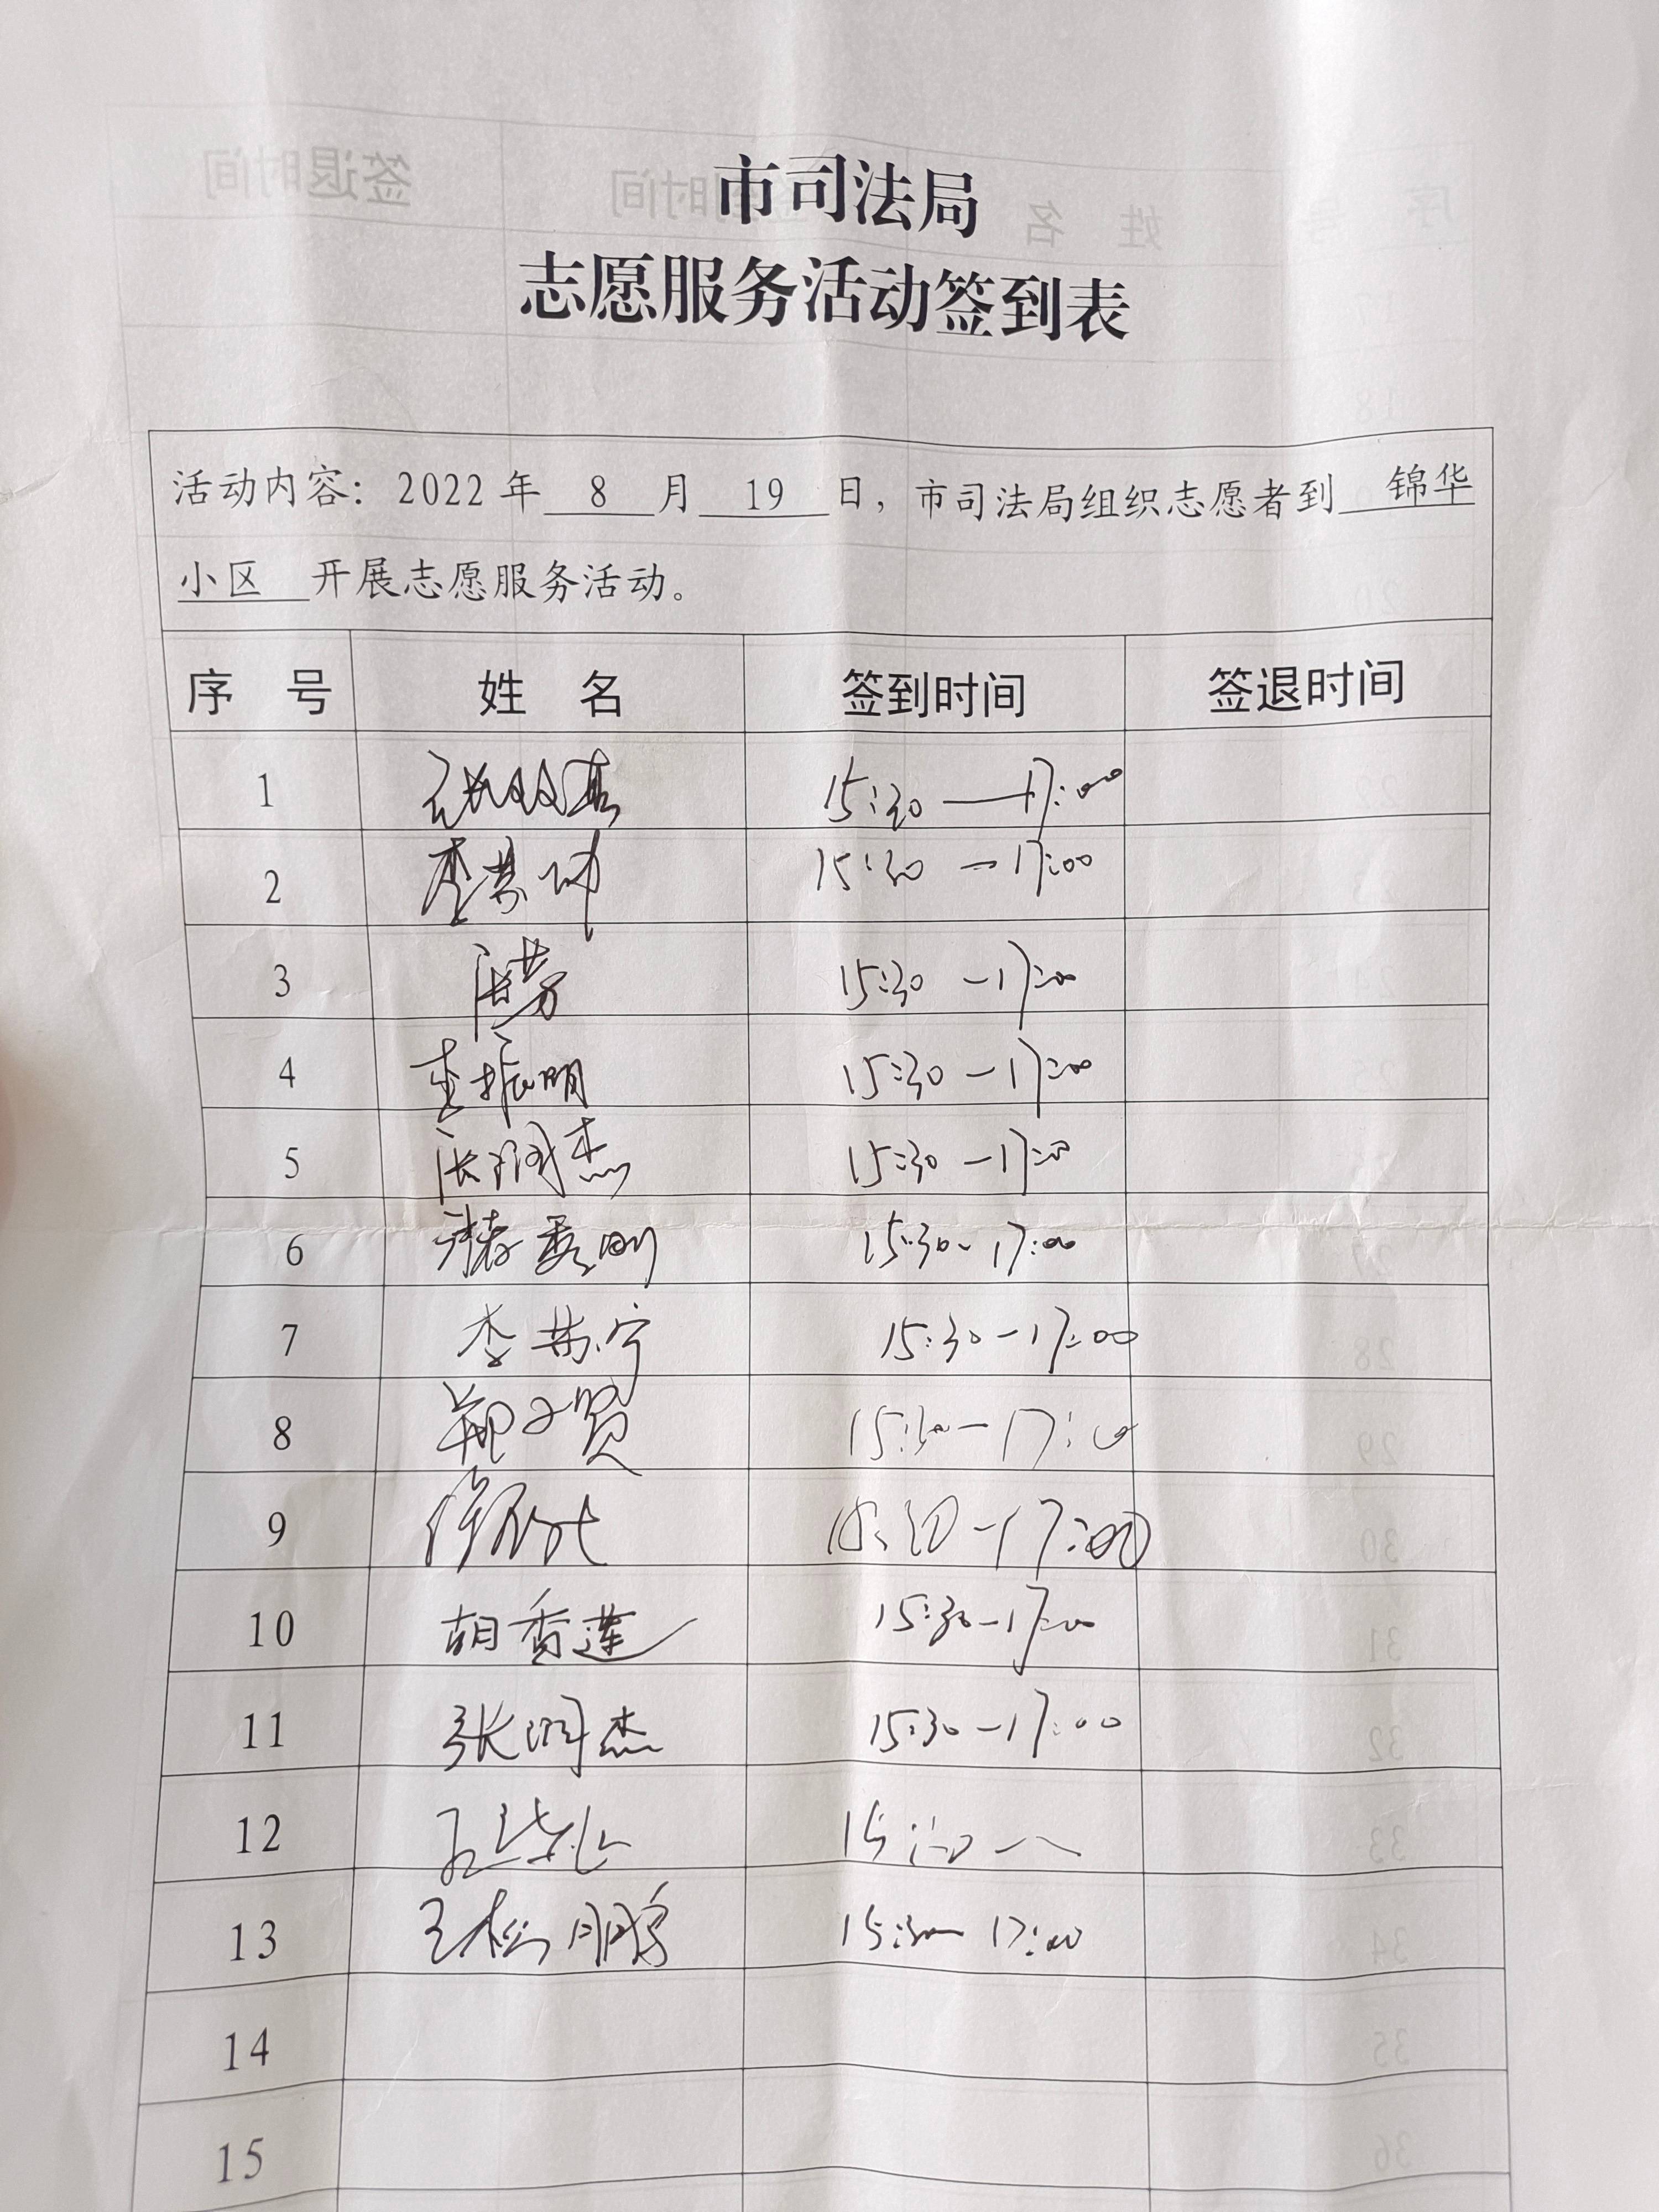 市司法局
志愿服务活动签到表
活动内容：2022 年 8 月 19 日，市司法局组织志愿者到 锦华
小区 开展志愿服务活动。
序 号 姓 名 签到时间 签退时间
1 15:30—17:00
2 15:30—17:00
3 张芳 15:30-17:00
4 李振明 15:30-17:00
5 张明杰 15:30-17:00
6 15:30-17:00
7 15:30-17:00
8 15:30-17:00
9 15:30-17:00
10 胡香莲 15:30-17:00
11 张明杰 15:30-17:00
12 15:30—
13 王松鹏 15:30-17:00
14
15